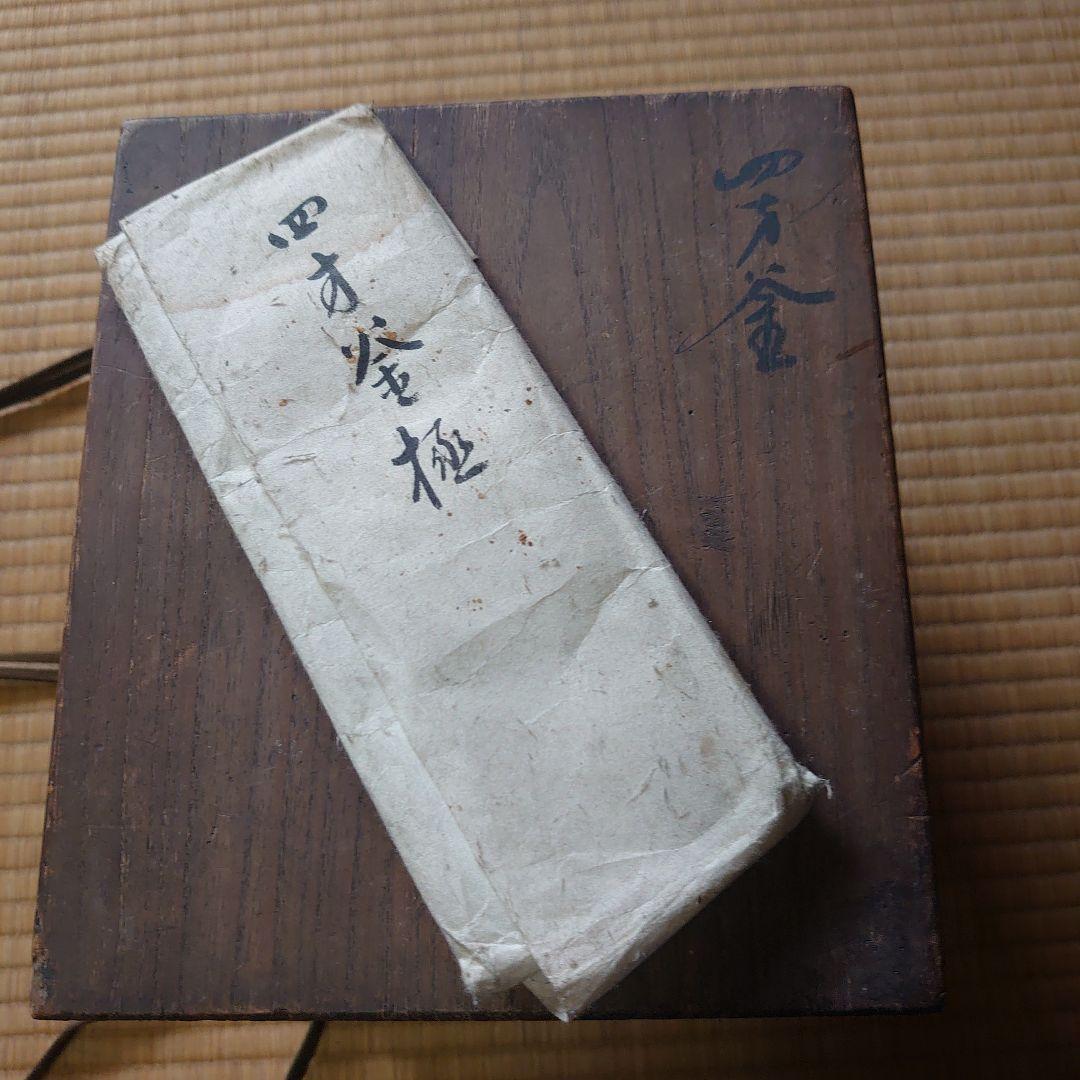 四方釜
四方釜極